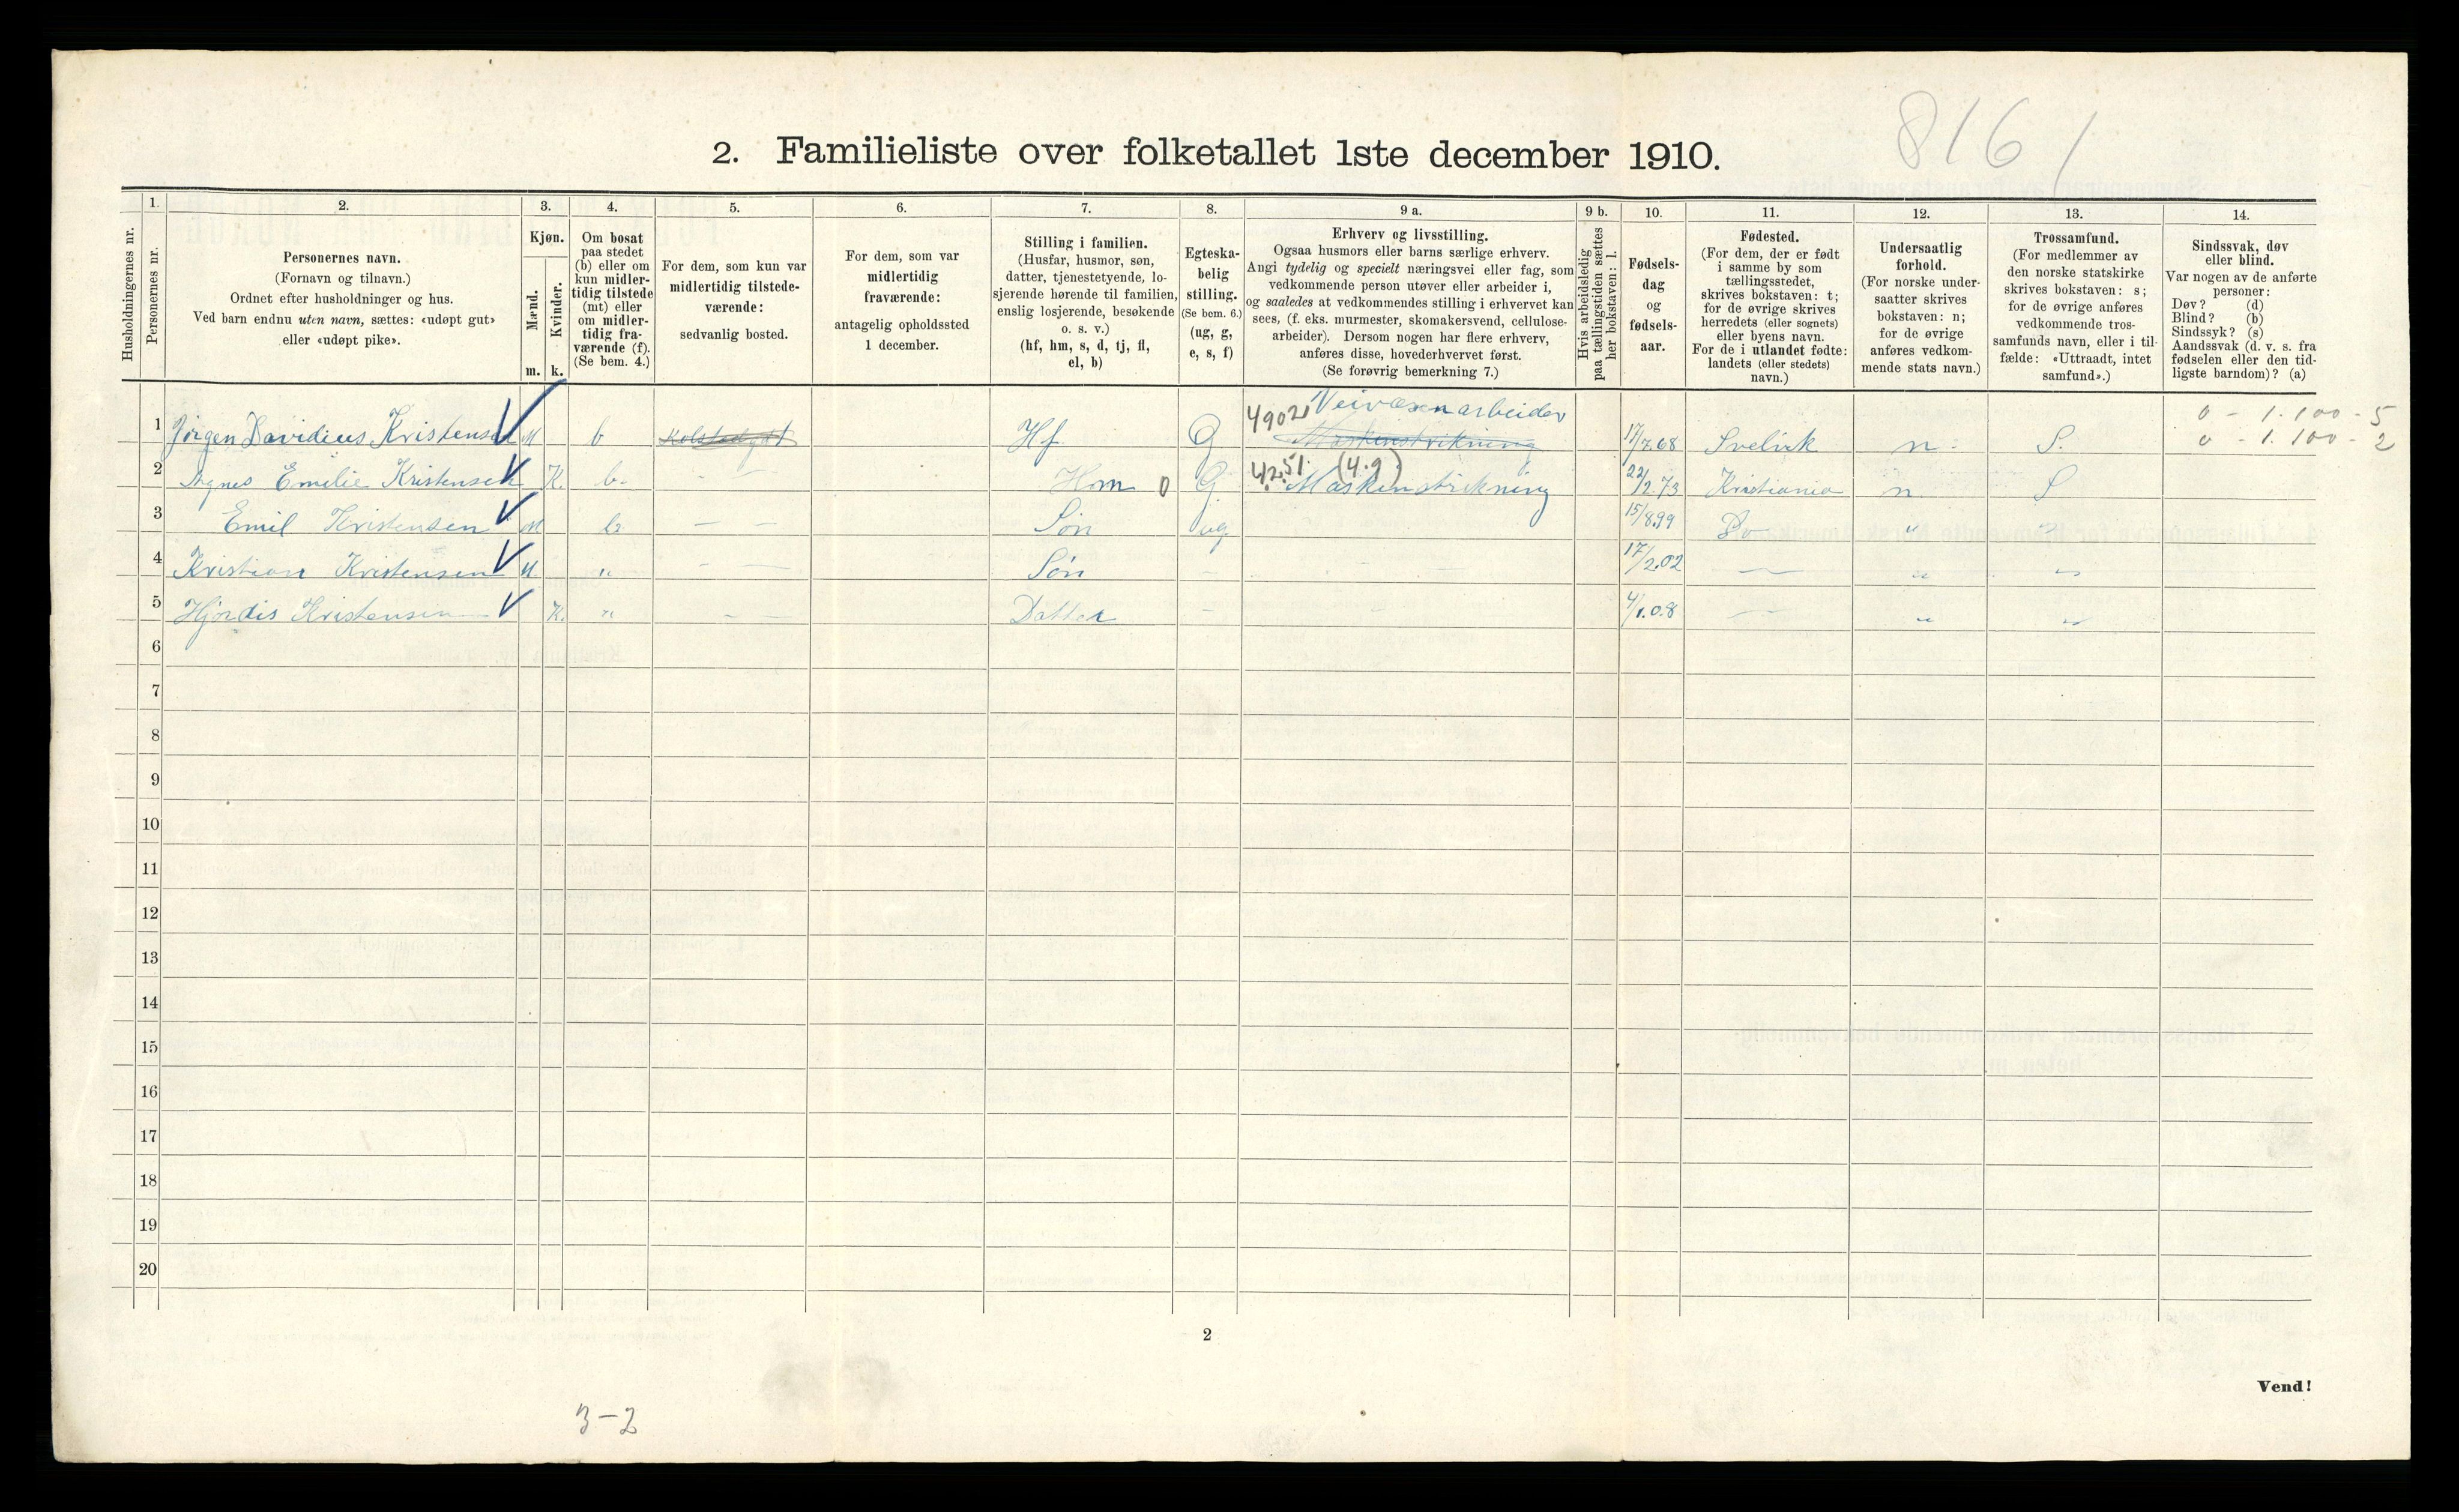 8161
2. Familieliste over folketallet 1ste december 1910.
Husholdningernes nr.
1.
Personernes nr.
2.
Personernes navn.
(Fornavn og tilnavn.)
Ordnet efter husholdninger og hus.
Ved barn endnu uten navn, sættes: «udøpt gut»
eller «udøpt pike».
3.
Kjøn.
Mænd.
Kvinder.
m. k.
4.
Om bosat
paa stedet
(b) eller om
kun midler-
tidig tilstede
(mt) eller
om midler-
tidig fra-
værende (f).
(Se bem. 4.)
5.
For dem, som kun var
midlertidig tilstede-
værende:
sedvanlig bosted.
6.
For dem, som var
midlertidig
fraværende:
antagelig opholdssted
1 december.
7.
Stilling i familien.
(Husfar, husmor, søn,
datter, tjenestetyende, lo-
sjerende hørende til familien,
enslig losjerende, besøkende
o. s. v.)
(hf, hm, s, d, tj, fl,
el, b)
8.
Egteska-
belig
stilling.
(Se bem. 6.)
(ug, g,
e, s, f)
9 a.
Erhverv og livsstilling.
Ogsaa husmors eller barns særlige erhverv.
Angi tydelig og specielt næringsvei eller fag, som
vedkommende person utøver eller arbeider i,
og saaledes at vedkommendes stilling i erhvervet kan
sees, (f. eks. murmester, skomakersvend, cellulose-
arbeider). Dersom nogen har flere erhverv,
anføres disse, hovederhvervet først.
(Se forøvrig bemerkning 7.)
9 b.
Hvis arbeidsledig
paa tællingstiden sættes
her bokstaven: l.
10.
Fødsels-
dag
og
fødsels-
aar.
11.
Fødested.
(For dem, der er født
i samme by som
tællingsstedet,
skrives bokstaven: t;
for de øvrige skrives
herredets (eller sognets)
eller byens navn.
For de i utlandet fødte:
landets (eller stedets)
navn.)
12.
Undersaatlig
forhold.
(For norske under-
saatter skrives
bokstaven: n;
for de øvrige
anføres vedkom-
mende stats navn.)
13.
Trossamfund.
(For medlemmer av
den norske statskirke
skrives bokstaven: s;
for de øvrige anføres
vedkommende tros-
samfunds navn, eller i til-
fælde: «Uttraadt, intet
samfund».)
14.
Sindssvak, døv
eller blind.
Var nogen av de anførte
personer:
Døv? (d)
Blind? (b)
Sindssyk? (s)
Aandssvak (d. v. s. fra
fødselen eller den tid-
ligste barndom)? (a)
4902 Veivæsenarbeider 0 - 1.100 - 5
1 Jørgen Davidius Kristensen M b Hf G Maskinstrikning 17/7.68 Svelvik n. S. 0 - 1.100 - 2
42.51 (4.9)
2 Agnes Emilie Kristensen K. b. - - Hm 0 G Maskinstrikning 22/2.73 Kristiania n S
3 Emil Kristensen M b - - Søn ug 15/8.99 Do " "
4 Kristian Kristensen M. " - - Søn - 17/2.02 - " "
5 Hjørdis Kristensen K. " - - Datter - 4/1.08 - " "
6
7
8
9
10
11
12
13
14
15
16
17
18
19
20
2
Vend!
3-2